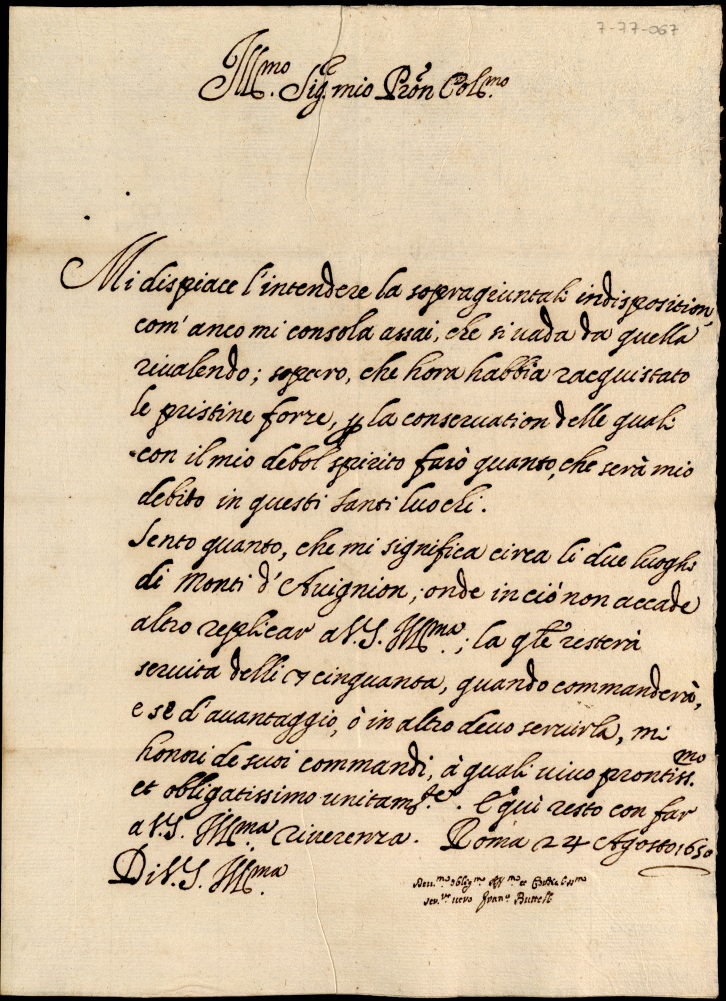 7-77-067
Ill.mo Sig.re mio Prõn Col.mo
Mi dispiace l'intendere la sopragiuntali indisposition,
com' anco mi consola assai, che si uada da quella
riualendo; spero, che hora habbia racquistato
le pristine forze, p la conseruation delle quali
con il mio debol spirito farò quanto, che serà mio
debito in questi santi luochi.
Sento quanto, che mi significa circa li due luoghi
di Monti d'Auignion; onde in ciò non accade
altro replicar a V.S. Ill.ma; la qle resterà
seruita delli cinquanta, quando commanderà,
e se d'auantaggio, ò in altro deuo seruirla, mi
honori de suoi commandi, à quali uiuo prontiss.mo
et obligatissimo unitam.te. E qui resto con far
a V.S. Ill.ma riuerenza. Roma 24 Agosto 1650
Di V.S. Ill.ma
Deu.mo oblig.mo Aff.mo et
ser.re uero Fran.o